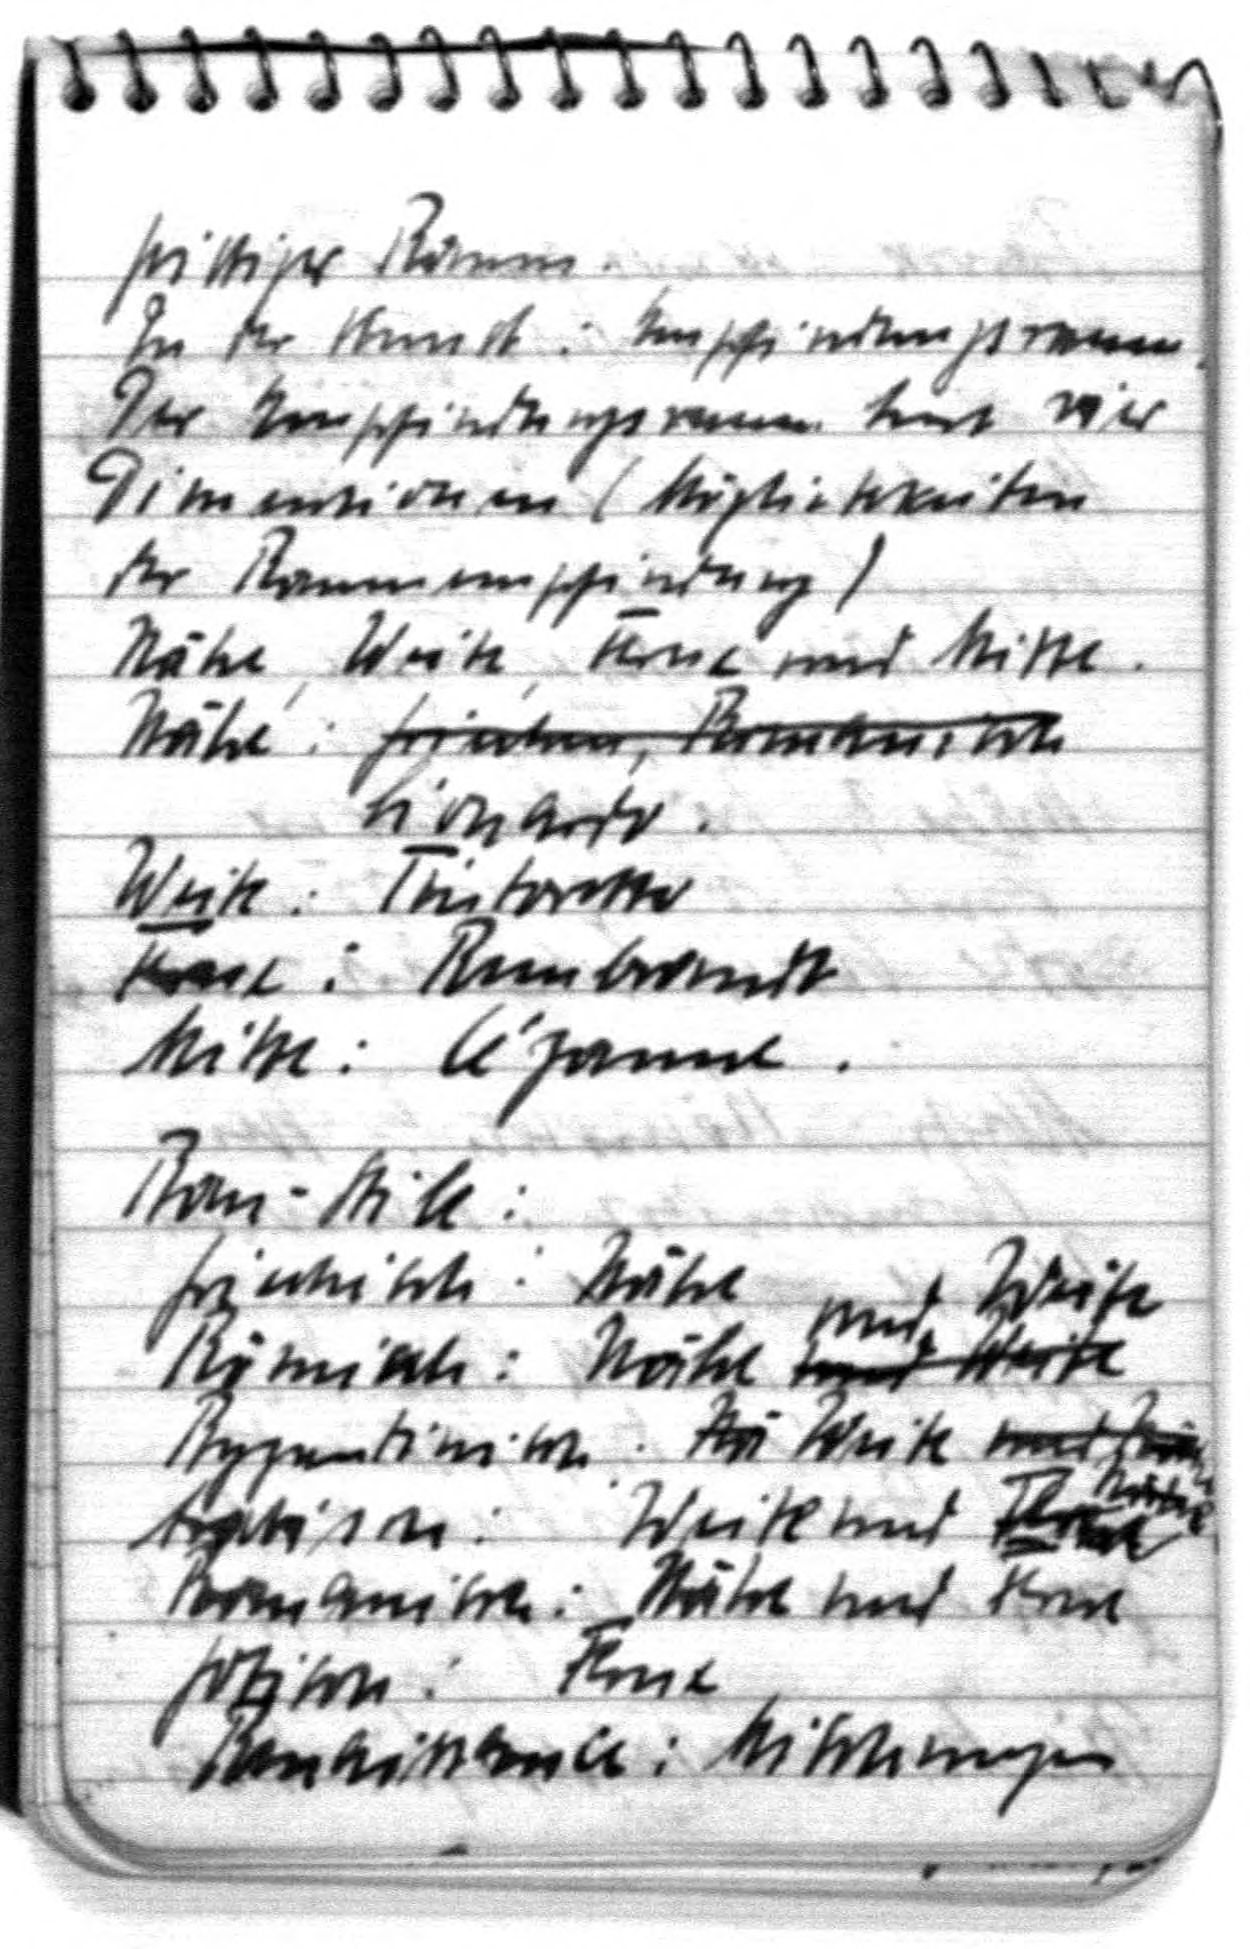 geistiger Raum.
In der Kunst: Empfindungsraum.
Der Empfindungsraum hat vier
Dimensionen (Möglichkeiten
der Raumempfindung)
Nähe, Weite, Ferne und Mitte.
Nähe: Griechen, Romanisch
Lionardo.
Weite: Tintoretto
Ferne: Rembrandt
Mitte: Cézanne.
Bau-Stile:
Griechisch: Nähe
Römisch: Nähe und Weite
und Weite
Byzantinisch: Nä Weite und
Weite und
Romanisch: Nähe und Ferne
Gotisch: Ferne
Mischungen